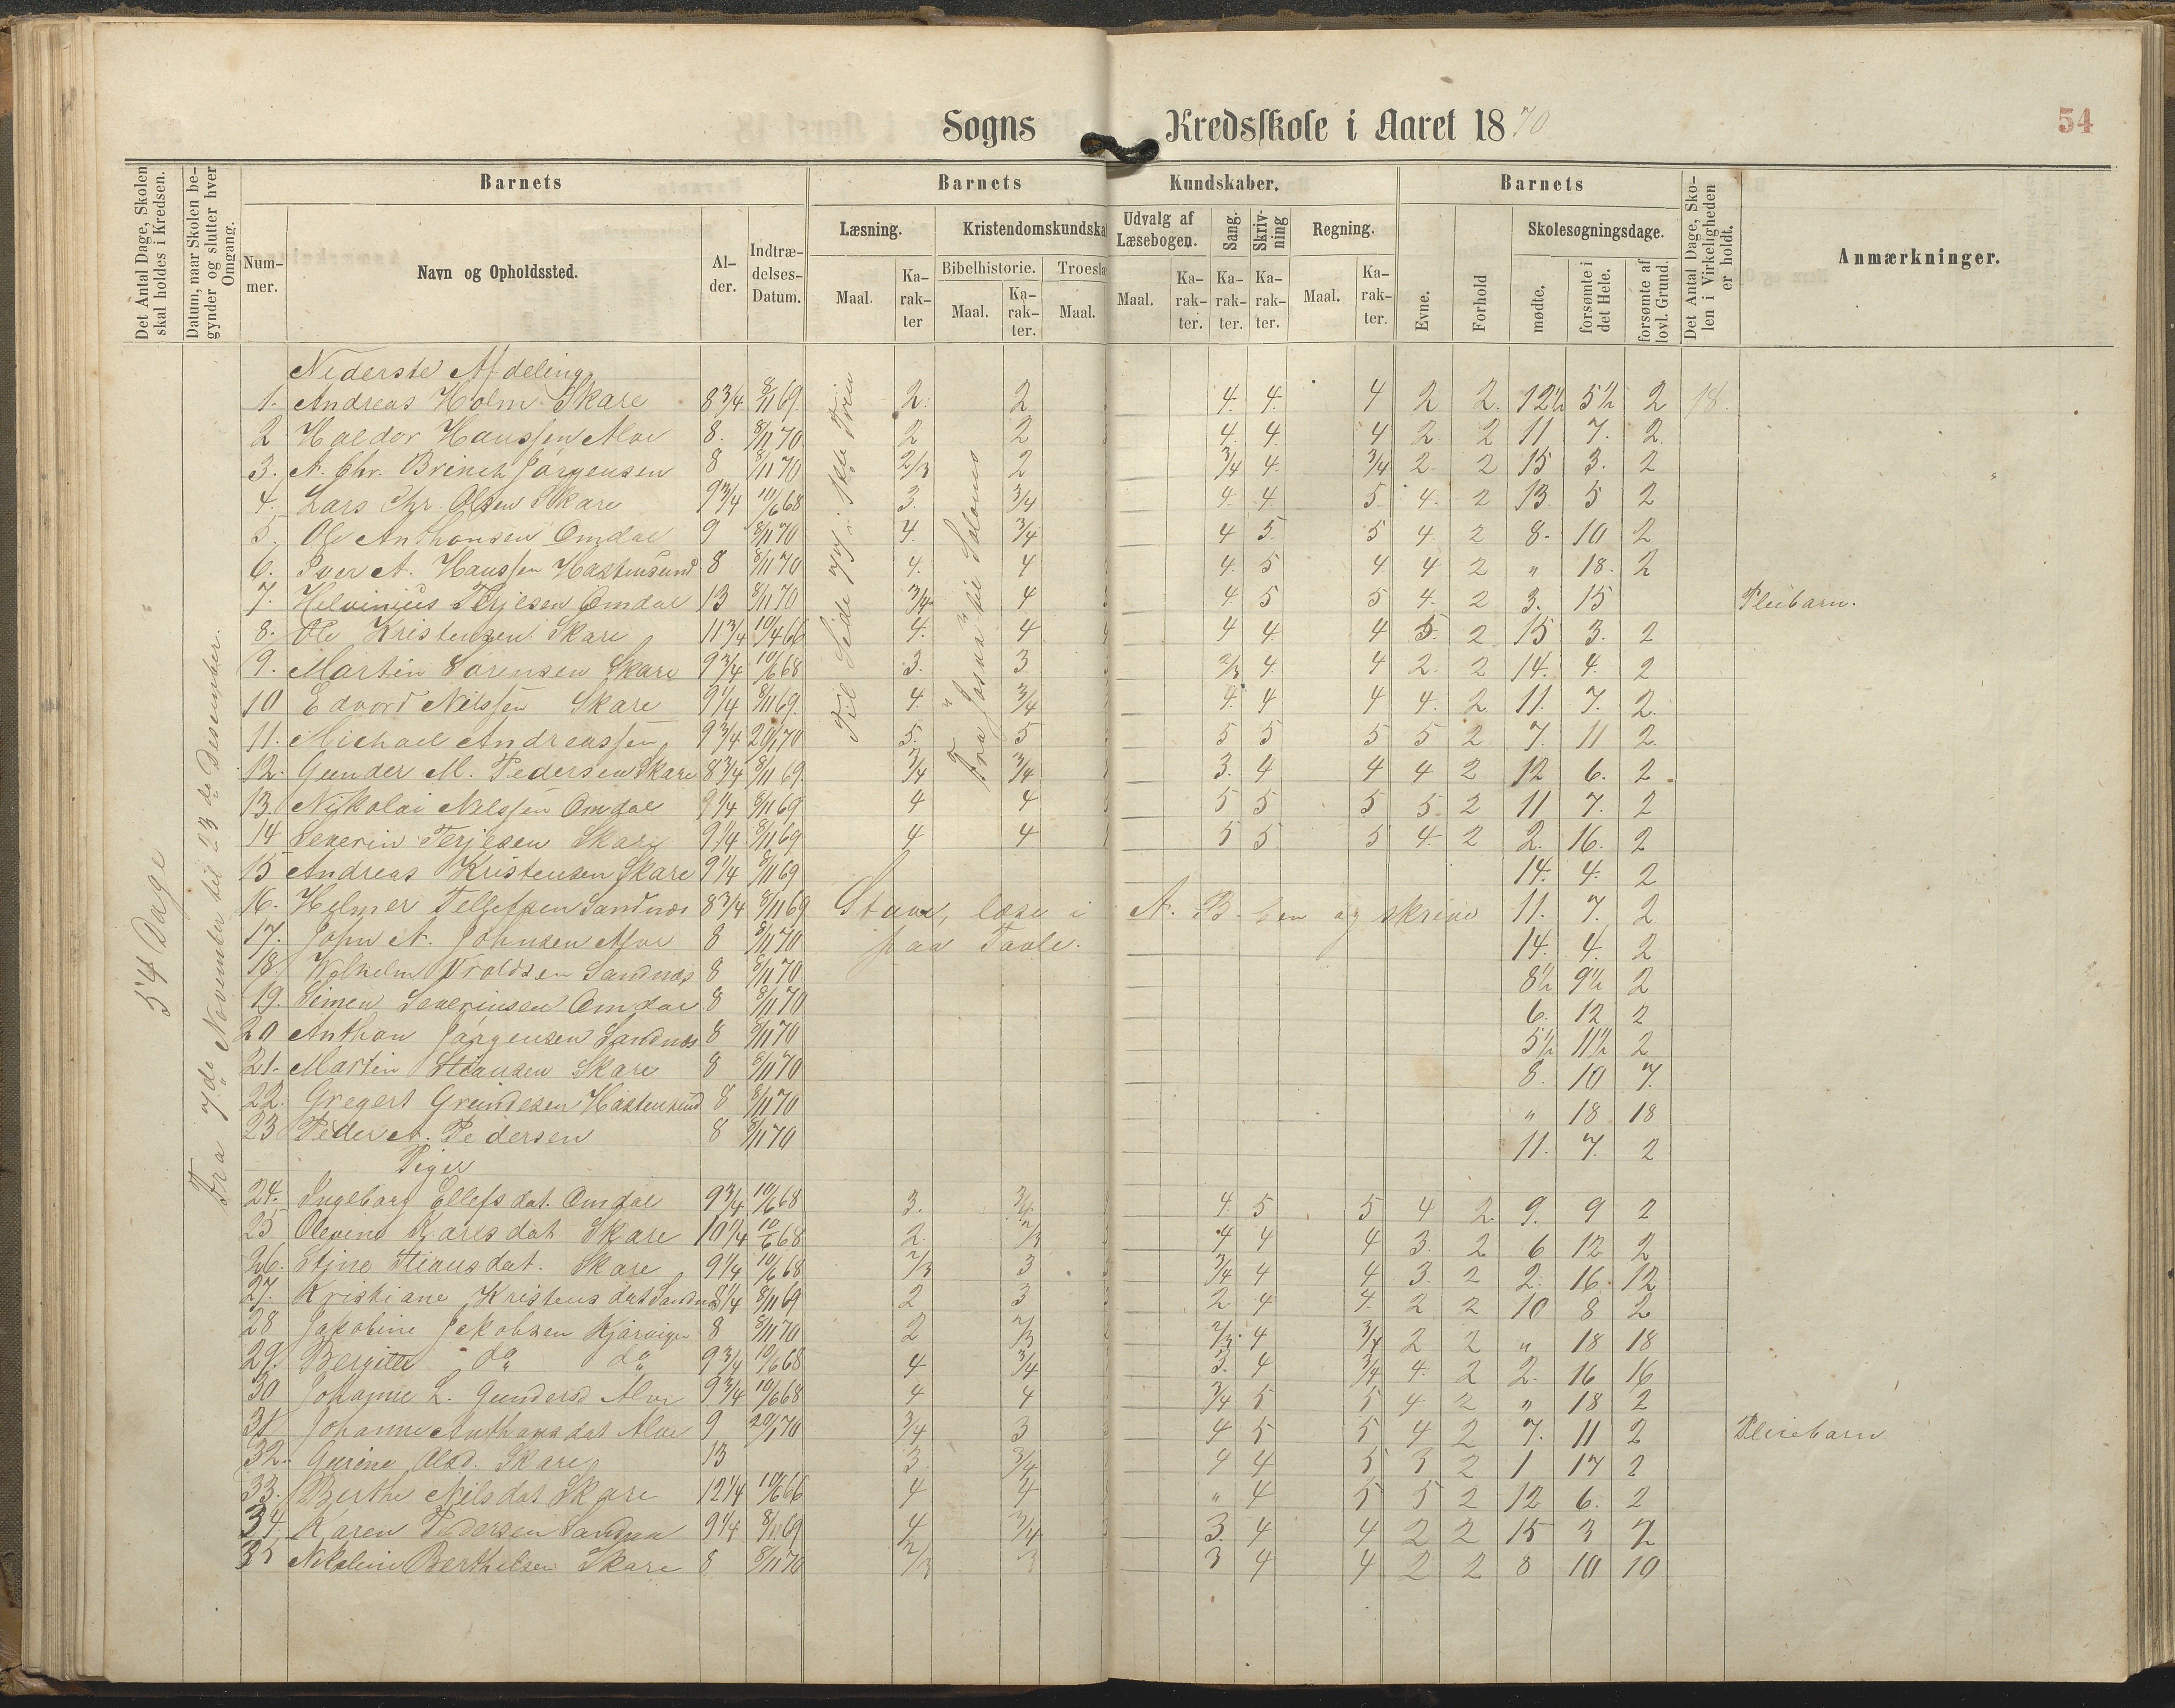 Sogns Kredsskole i Aaret 1870
54
Det Antal Dage, Skolen skal holdes i Kredsen.
Datum, naar Skolen begynder og slutter hver Omgang.
Barnets
Barnets Kundskaber.
Barnets
Det Antal Dage, Skolen i Virkeligheden er holdt.
Anmærkninger.
Nummer.
Navn og Opholdssted.
Alder.
Indtrædelses-Datum.
Læsning.
Kristendomskundska
Udvalg af Læsebogen.
Sang.
Skrivning
Regning.
Evne.
Forhold
Skolesøgningsdage.
Bibelhistorie.
Troeslæ
Maal. Karakter Maal. Karakter. Maal. Maal. Karakter. Karakter. Karakter. Maal. Karakter.
mødte. forsømte i det Hele. forsømte af lovl. Grund.
54 Dage
Fra 7de November til 23de Desember.
Til Side 77 i
Fra Josua til Salomo
Nederste Afdeling
1. Andreas Holm Skare 8 3/4 8/11 69. 2. 2 4. 4. 4 2 2. 12 1/2 5 1/2 2 18.
2 Haldor Hanssen Alve 8. 8/11 70 2 2 4. 4. 4 2. 2 11 7. 2.
3. A. Chr. Brinch Jörgensen 8 8/11 70 2/3 2 3/4 4. 3/4 2. 2 15 3. 2
4. Lars Chr. Olsen Skare 9 3/4 10/6 68 3. 3/4 4. 4. 5. 4. 2 13. 5 2
5. Ole Anthonsen Omdal 9 8/11 70 4. 3/4 4 5. 5 4. 2 8. 10 2
6. Iver A. Hanssen Hastensund 8 8/11 70 4. 4 4. 5 4 4 2 " 18. 2
7. Helvinius Terjesen Omdal 13 8/11 70 3/4 4 4. 5 5 4. 2 3. 15 Pleibarn.
8. Ole Kristensen Skare 11 3/4 10/4 66 4. 4 4 4. 4 5. 2 15 3. 2
9. Martin Sörensen Skare 9 3/4 10/6 68 3. 3. 2/3 4. 4 2. 2 14. 4. 2
10 Edvard Nilssen Skare 9 1/4 8/11 69. 4. 3/4 4. 4 4 4. 2 11. 7. 2.
11. Michael Andreassen 9 3/4 20/1 70 5. 5 5 5 5 5 2 7. 11 2.
12. Gunder M. Pedersen Skare 8 3/4 8/11 69. 3/4 3/4 3. 4 4 4 2 12 6. 2.
13. Nikolai Nilssen Omdal 9 1/4 8/11 69 4 4 5 5 5 5 2 11 7. 2
14 Severin Terjesen Skare 9 1/4 8/11 69 4 4 5 5. 5 4. 2 2. 16. 2
15 Andreas Kristensen Skare 9 1/4 8/11 69 14. 4. 2
16. Helmer Tellefsen Sandnæs 8 3/4 8/11 69 Stave, læse i A. B. og skrive 11. 7. 2
17. John A. Johnsen Alve 8 8/11 70 paa Tavle. 14. 4. 2
18. Vroldsen Sandnæs 8 8/11 70 8 1/2 9 1/2 2
19. Simen Severinsen Omdal 8 8/11 70 6. 12 2
20 Anthon Jörgensen Sandnæs 8 8/11 70 5 1/2 11 1/2 2
21. Martin Skare 8 8/11 70 8. 10 7.
22. Gregert Hastensund 8 8/11 70 " 18 18
23 Peder A. Pedersen 8 8/11 70 11. 7. 2
Piger
24. Ingeborg Ellefsdat. Omdal 9 3/4 10/6 68 3. 3/4 4. 5 5 4 2. 9. 9 2
25 Olevine Karesdat Skare 10 1/4 10/6 68 2. 2/3 4 4 4 3. 2 6 12 2
26. Stine Skare 9 1/4 10/6 68 2/3 3 3/4 4 4 3. 2 2. 16. 12
27. Kristiane Kristensdat Sandnæs 8 1/4 8/11 69 2 3 2 4 4. 2 2 10 8 2
28 Jakobine Jakobsen 8 8/11 70 2 2/3 2/3. 4 3/4 2 2 " 18 18
29. Bergitte do do 9 3/4 10/6 68 4 3/4 3. 4 3/4 4. 2 2. 16 16
30 Johanne L. Gundersd Alve 9 3/4 10/6 68 4 4 3/4 5 5 4 2 " 18 2
31 Johanne Anthonsdat Alve 9 20/1 70 3/4 3 4 5 5 4 2 7. 11 2 Pleiebarn
32. Gurine Olsd. Skare 13 3. 3/4 4 4 5 3 2 1 17 2
33. Berthe Nilsdat Skare 12 1/4 10/6 66 4 4 " 4 5 5 2 12 6. 2
34. Karen Pedersen Sandnæs 9 1/4 8/11 69 4 3/4 3. 4 4 2 2 15 3 2
35 Nikoline Berthelsen Skare 8 8/11 70 2/3 3 3 4 4 2 2 8 10 10